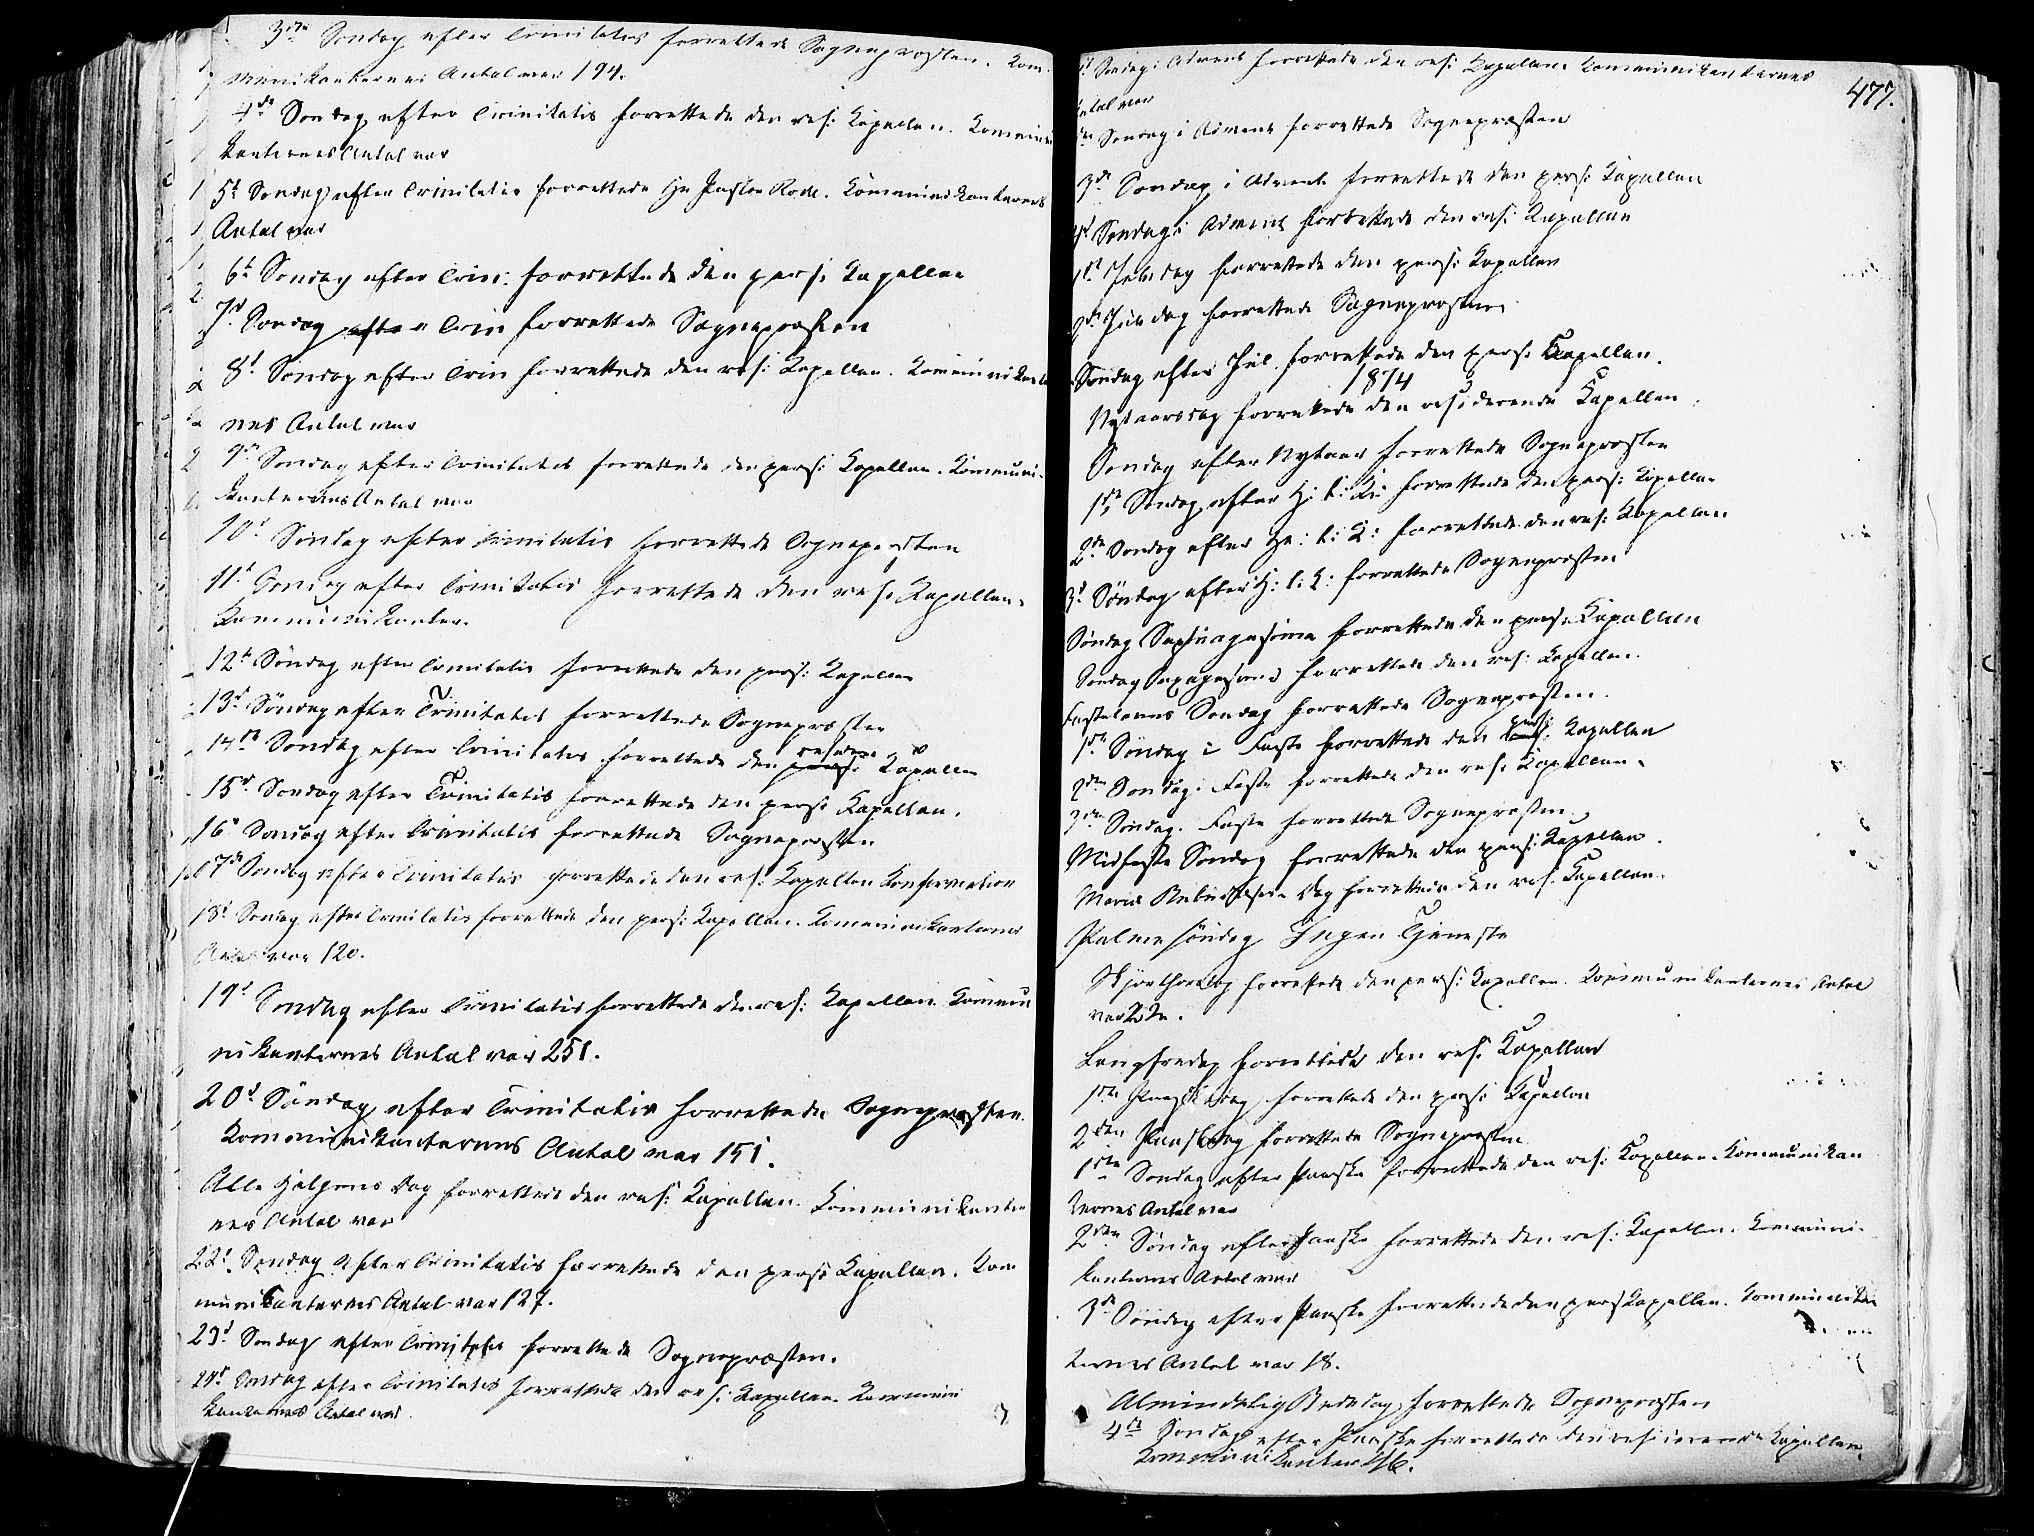 3die Søndag efter Trinitatis forrettede Sognepræsten. Kom
munikanternes Antal var 194.
4de Søndag efter Trinitatis forrettede den res: Kapellan. Kommuni
kanternes Antal var
5t Søndag efter Trinitatis forrettede Hr Pastor Rode. Kommunikanternes
Antal var
6t Søndag efter Trin: forrettede den pers: Kapellan
7d Søndag efter Trin forrettede Sognepræsten
8d Søndag efter Trin forrettede den res: Kapellan. Kommunikanter
nes Antal var
9de Søndag efter Trinitatis forrettede den pers: Kapellan. Kommuni-
kanternes Antal var
10d Søndag efter Trinitatis forrettede Sognepræsten
11t Søndag efter Trinitatis forrettede den res: Kapellan.
Kommunikanter.
12t Søndag efter Trinitatis forrettede den pers: Kapellan
13d Søndag efter Trinitatis forrettede Sognepræsten
14de Søndag efter Trinitatis forrettede den residere Kapellan
15d Søndag efter Trinitatis forrettede den pers: Kapellan.
16d Søndag efter Trinitatis forrettede Sognepræsten
17de Søndag efter Trinitatis forrettede den res: Kapellan Konfirmation
18d Søndag efter Trinitatis forrettede den pers: Kapellan. Kommunikanternes
Antal var 120.
19d Søndag efter Trinitatis forrettede den res: Kapellan. Kommu
nikanternes Antal var 251.
20d Søndag efter Trinitatis forrettede Sognepræsten.
Kommunikanternes Antal var 151.
Alle Helgens Dag forrettede den res: Kapellan. Kommunikanter
nes Antal var
22d Søndag efter Trinitatis forrettede den pers: Kapellan. Kom
munikanternes Antal var 127.
23d Søndag efter Trinitatis forrettede Sognepræsten.
24d Søndag efter Trinitatis forrettede den res: Kapellan. Kommuni
kanternes Antal var.
477.
Søndag i Advent forrettede den res: Kapellan. Kommunikanternes
Antal var
Søndag i Advent forrettede Sognepræsten
3de Søndag i Advent forrettede den pers: Kapellan
4d Søndag i Advent forrettede den res: Kapellan
1st Juledag forrettede den pers: Kapellan
2de Juledag forrettede Sognepræsten
Søndag efter Jul forrettede den pers: Kapellan.
1874
Nytaarsdag forrettede den residerende Kapellan.
Søndag efter Nytaar forrettede Sognepræsten
1ste Søndag efter H: t: K: forrettede den pers: Kapellan
2den Søndag efter He: t: K: forrettede den res: Kapellan
3d Søndag efter H: t: K: forrettede Sognepræsten
Søndag Septuagesima forrettede den pers: Kapellan
Søndag Sexagesima forrettede den res: Kapellan.
Fastelavns Søndag forrettede Sognepræsten.
1ste Søndag i Faste forrettede den pers: Kapellan
2den Søndag i Faste forrettede den res: Kapellan.
3die Søndag i Faste forrettede Sognepræsten
Midfaste Søndag forrettede den pers: Kapellan.
Mariæ Bebudelses Dag forrettede den res: Kapellan.
Palmesøndag Ingen Tjeneste
Skjærthorsdag forrettede den pers: Kapellan. Kommunikanternes Antal
var
Langfredag forrettede den res: Kapellan
1ste Paaskedag forrettede den pers: Kapellan
2den Paaskedag forrettede Sognepræsten
1ste Søndag efter Paaske forrettede den res: Kapellan. Kommunikan
ternes Antal var
2den Søndag efter Paaske forrettede den res: Kapellan. Kommuni-
kanternes Antal var
3de Søndag efter Paaske forrettede den pers Kapellan. Kommunikan
ternes Antal var 18.
Almindelig Bededag forrettede Sognepræsten
4de Søndag efter Paaske forrettede den residerende Kapellan.
Kommunikanter